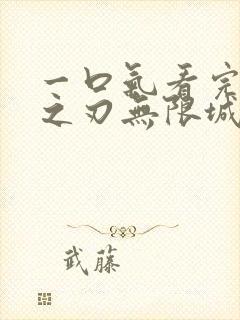 一口氣看完
之刃無限城
武藤